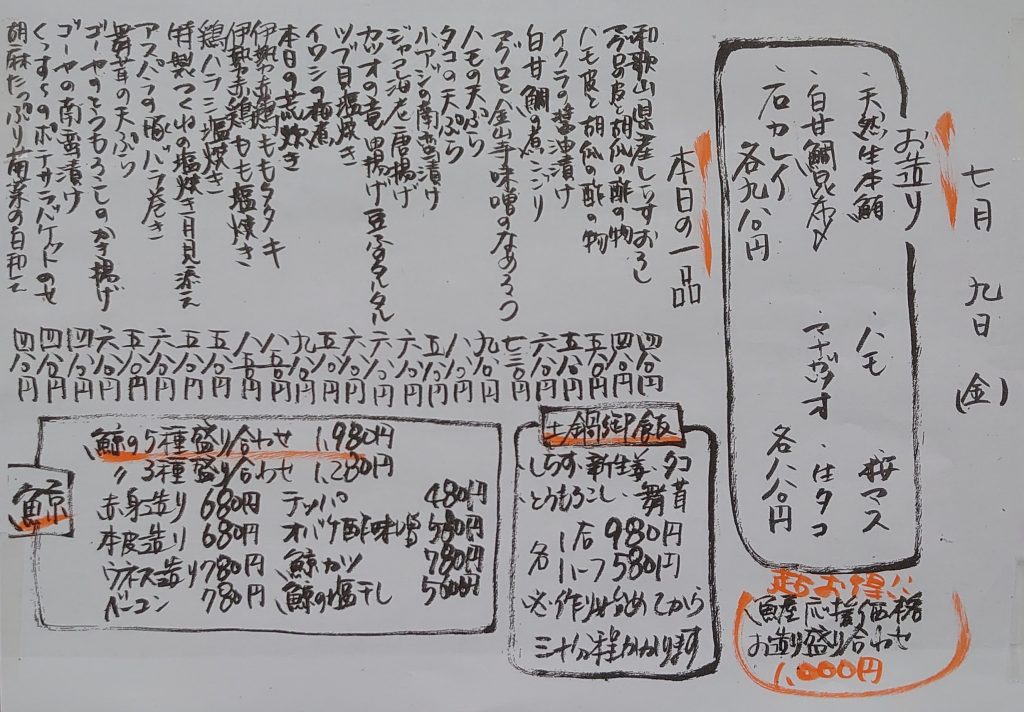 七月 九日 (金)
お造り
・天然生本鮪 ・ハモ 桜マス
・白甘鯛昆布〆 マナガツオ ・生タコ
・石カレイ
各九八〇円 各八八〇円
超お得!!
魚産応援価格
お造り盛り合わせ
1,000円
本日の一品
和歌山県産しらすおろし 四八〇円
マグロの皮と胡瓜の酢の物 四八〇円
ハモ皮と胡瓜の酢の物 五八〇円
イクラの醤油漬け 五八〇円
白甘鯛の煮こごり 六八〇円
マグロと金山寺味噌のなめろう 七三〇円
ハモの天ぷら 九八〇円
タコの天ぷら 八八〇円
小アジの南蛮漬け 五八〇円
ジャコ海老唐揚げ 六八〇円
カツオの竜田揚げ 豆ふタルタル 六八〇円
ツブ貝塩焼き 六八〇円
イワシの梅煮 五八〇円
本日の荒炊き 九八〇円
伊勢赤鶏ももタタキ 八八〇円
伊勢赤鶏もも塩焼き 八五〇円
鶏ハラミ塩焼き 五八〇円
特製つくねの塩焼き月見添え 六八〇円
アスパラの豚バラ巻き 五八〇円
舞茸の天ぷら 六八〇円
ゴーヤのとうもろこしのかき揚げ
ゴーヤの南蛮漬け 四八〇円
くんすものポテサラバケットのせ 四八〇円
胡麻たっぷり南菜の白和え 四八〇円
土鍋御飯
しらす・新生姜・タコ
とうもろこし・舞茸
各 1合 980円
ハーフ 580円
※作り始めてから
三十分程かかります
鯨
鯨の5種盛り合わせ 1,980円
〃3種盛り合わせ 1,280円
赤身造り 680円 テッパ 480円
本皮造り 680円 オバケ酢味噌 580円
ウネス造り 780円 鯨カツ 780円
ベーコン 780円 鯨の塩干し 500円